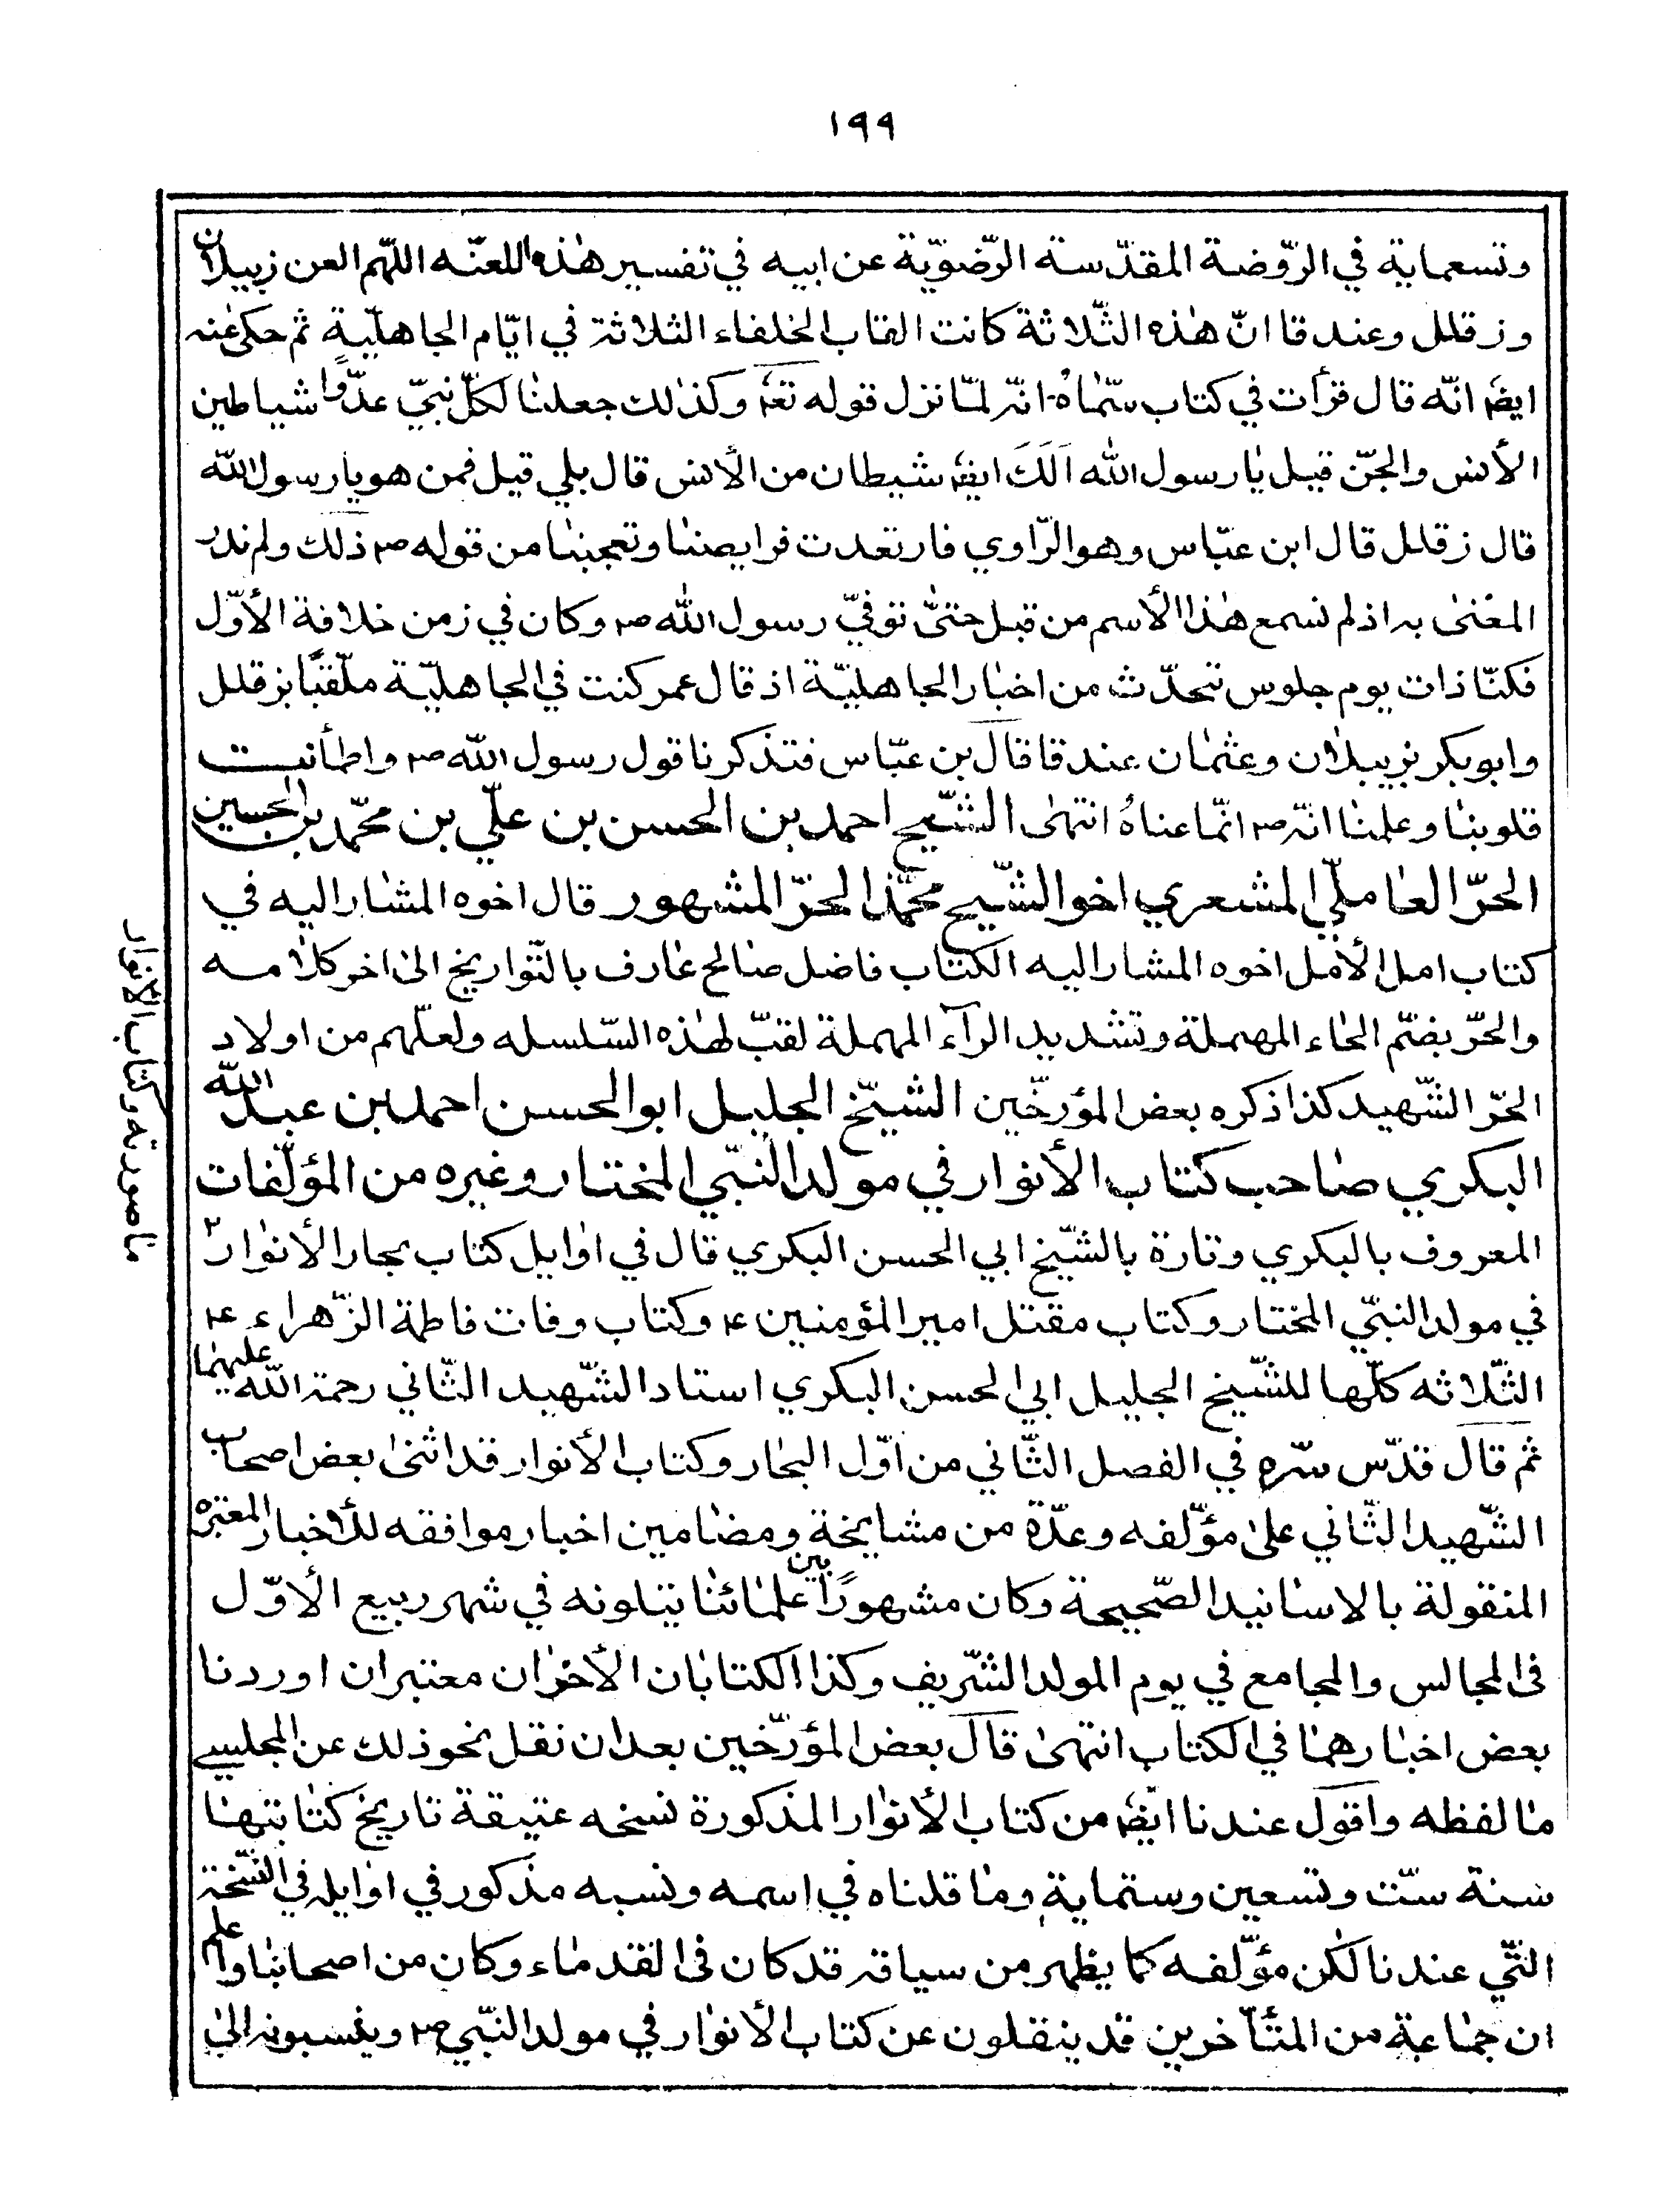 ١٩٩
وتسعماية في الرّوضة المقدّسة الرّضوّية عن ابيه في تفسير هٰذه اللعنّه اللّهم العن زبيلان
و زقلل وعندقا انّ هٰذه الثّلاثة كانت القاب الخلفاء الثلاثة في ايّام الجاهليّة ثم حكى عنه
ايضً انّه قال قرأت في كتاب سمّاهُ انّه لمّا نزل قوله تعٰ وكذلك جعلنا لكلّ نبيّ عدّوا شياطين
الأنس والجنّ قيل يا رسول الله اَلَكَ ايضً شيطان من الأنس قال بلي قيل فمن هو يا رسول الله
قال زقلل قال ابن عبّاس وهو الرّاوي فارتعدت فرايصنا وتعجبنا من قوله ص ذلك ولم ندر
المعنىٰ به اذ لم نسمع هٰذا الأسم من قبل حتىّٰ توفيّ رسول الله ص وكان في زمن خلافة الأوّل
فكنّا ذات يوم جلوس نتحدّث من اخبار الجاهليّة اذ قال عمر كنت في الجاهليّة ملّقبًا بزقلل
وابوبكر بزبيلان وعثمان عندقا قال بن عبّاس فتذكرنا قول رسول الله ص واطمأنيت
قلوبنا وعلمنا انّه ص انّما عناهُ انتهىٰ الشّيخ احمد بن الحسن بن عليّ بن محمّد بن الحسين
الحرّ العامليّ المشعري اخو الشّيخ محمّد الحرّ المشهور قال اخوه المشار اليه في
كتاب امل الأمل اخوه المشار اليه الكتاب فاضل صالح عارف بالتّواريخ الىٰ اخر كلامه
والحرّ بضمّ الحاء المهملة وتشديد الرآء المهملة لقبّ لهٰذه السّلسله ولعلّهم من اولاد
الحرّ الشّهيد كذا ذكره بعض المؤرخّين الشيّخ الجليل ابو الحسن احمد بن عبد الله
البكري صاحب كتاب الأنوار في مولد النّبيّ المختار وغيره من المؤلّفات
المعروف بالبكري وتارة بالشيّخ ابي الحسن البكري قال في اوايل كتاب بحار الأنوار
في مولد النبّي المختار وكتاب مقتل امير المؤمنين ع وكتاب وفات فاطمة الزّهراء ع
الثّلاثه كلّها للشّيخ الجليل ابي الحسن البكري استاد الشّهيد الثّاني رحمة الله عليهما
ثم قال قدّس سّره في الفصل الثّاني من اوّل البحار وكتاب الأنوار قد اثنىٰ بعض اصحاب
الشّهيد الثّاني علىٰ مؤّلفه وعدّة من مشايخة ومضامين اخبار موافقه للأخبار المعتبره
المنقولة بالاسانيد الصّحيحة وكان مشهورًا بين علمائنا يتلونه في شهر ربيع الأوّل
فى المجالس والمجامع في يوم المولد الشّريف وكذا الكتابان الأخران معتبران اوردنا
بعض اخبارهما في الكتاب انتهىٰ قال بعض المؤرّخين بعد ان نقل نحو ذلك عن المجلسي
ما لفظه واقول عندنا ايضً من كتاب الأنوار المذكورة نسخه عتيقة تاريخ كتابتها
سنة ستّ وتسعين وستماية وما قلناه في اسمه ونسبه مذكور في اوايله في النسّخة
التّي عندنا لكن مؤّلفه كما يظهر من سياقه قد كان فى القدماء وكان من اصحابنا واعلم
ان جماعة من المتأخرين قد ينقلون عن كتاب الأنوار في مولد النّبي ص وينسبونه الىٰ
ما صورته وكتاب الأنوار